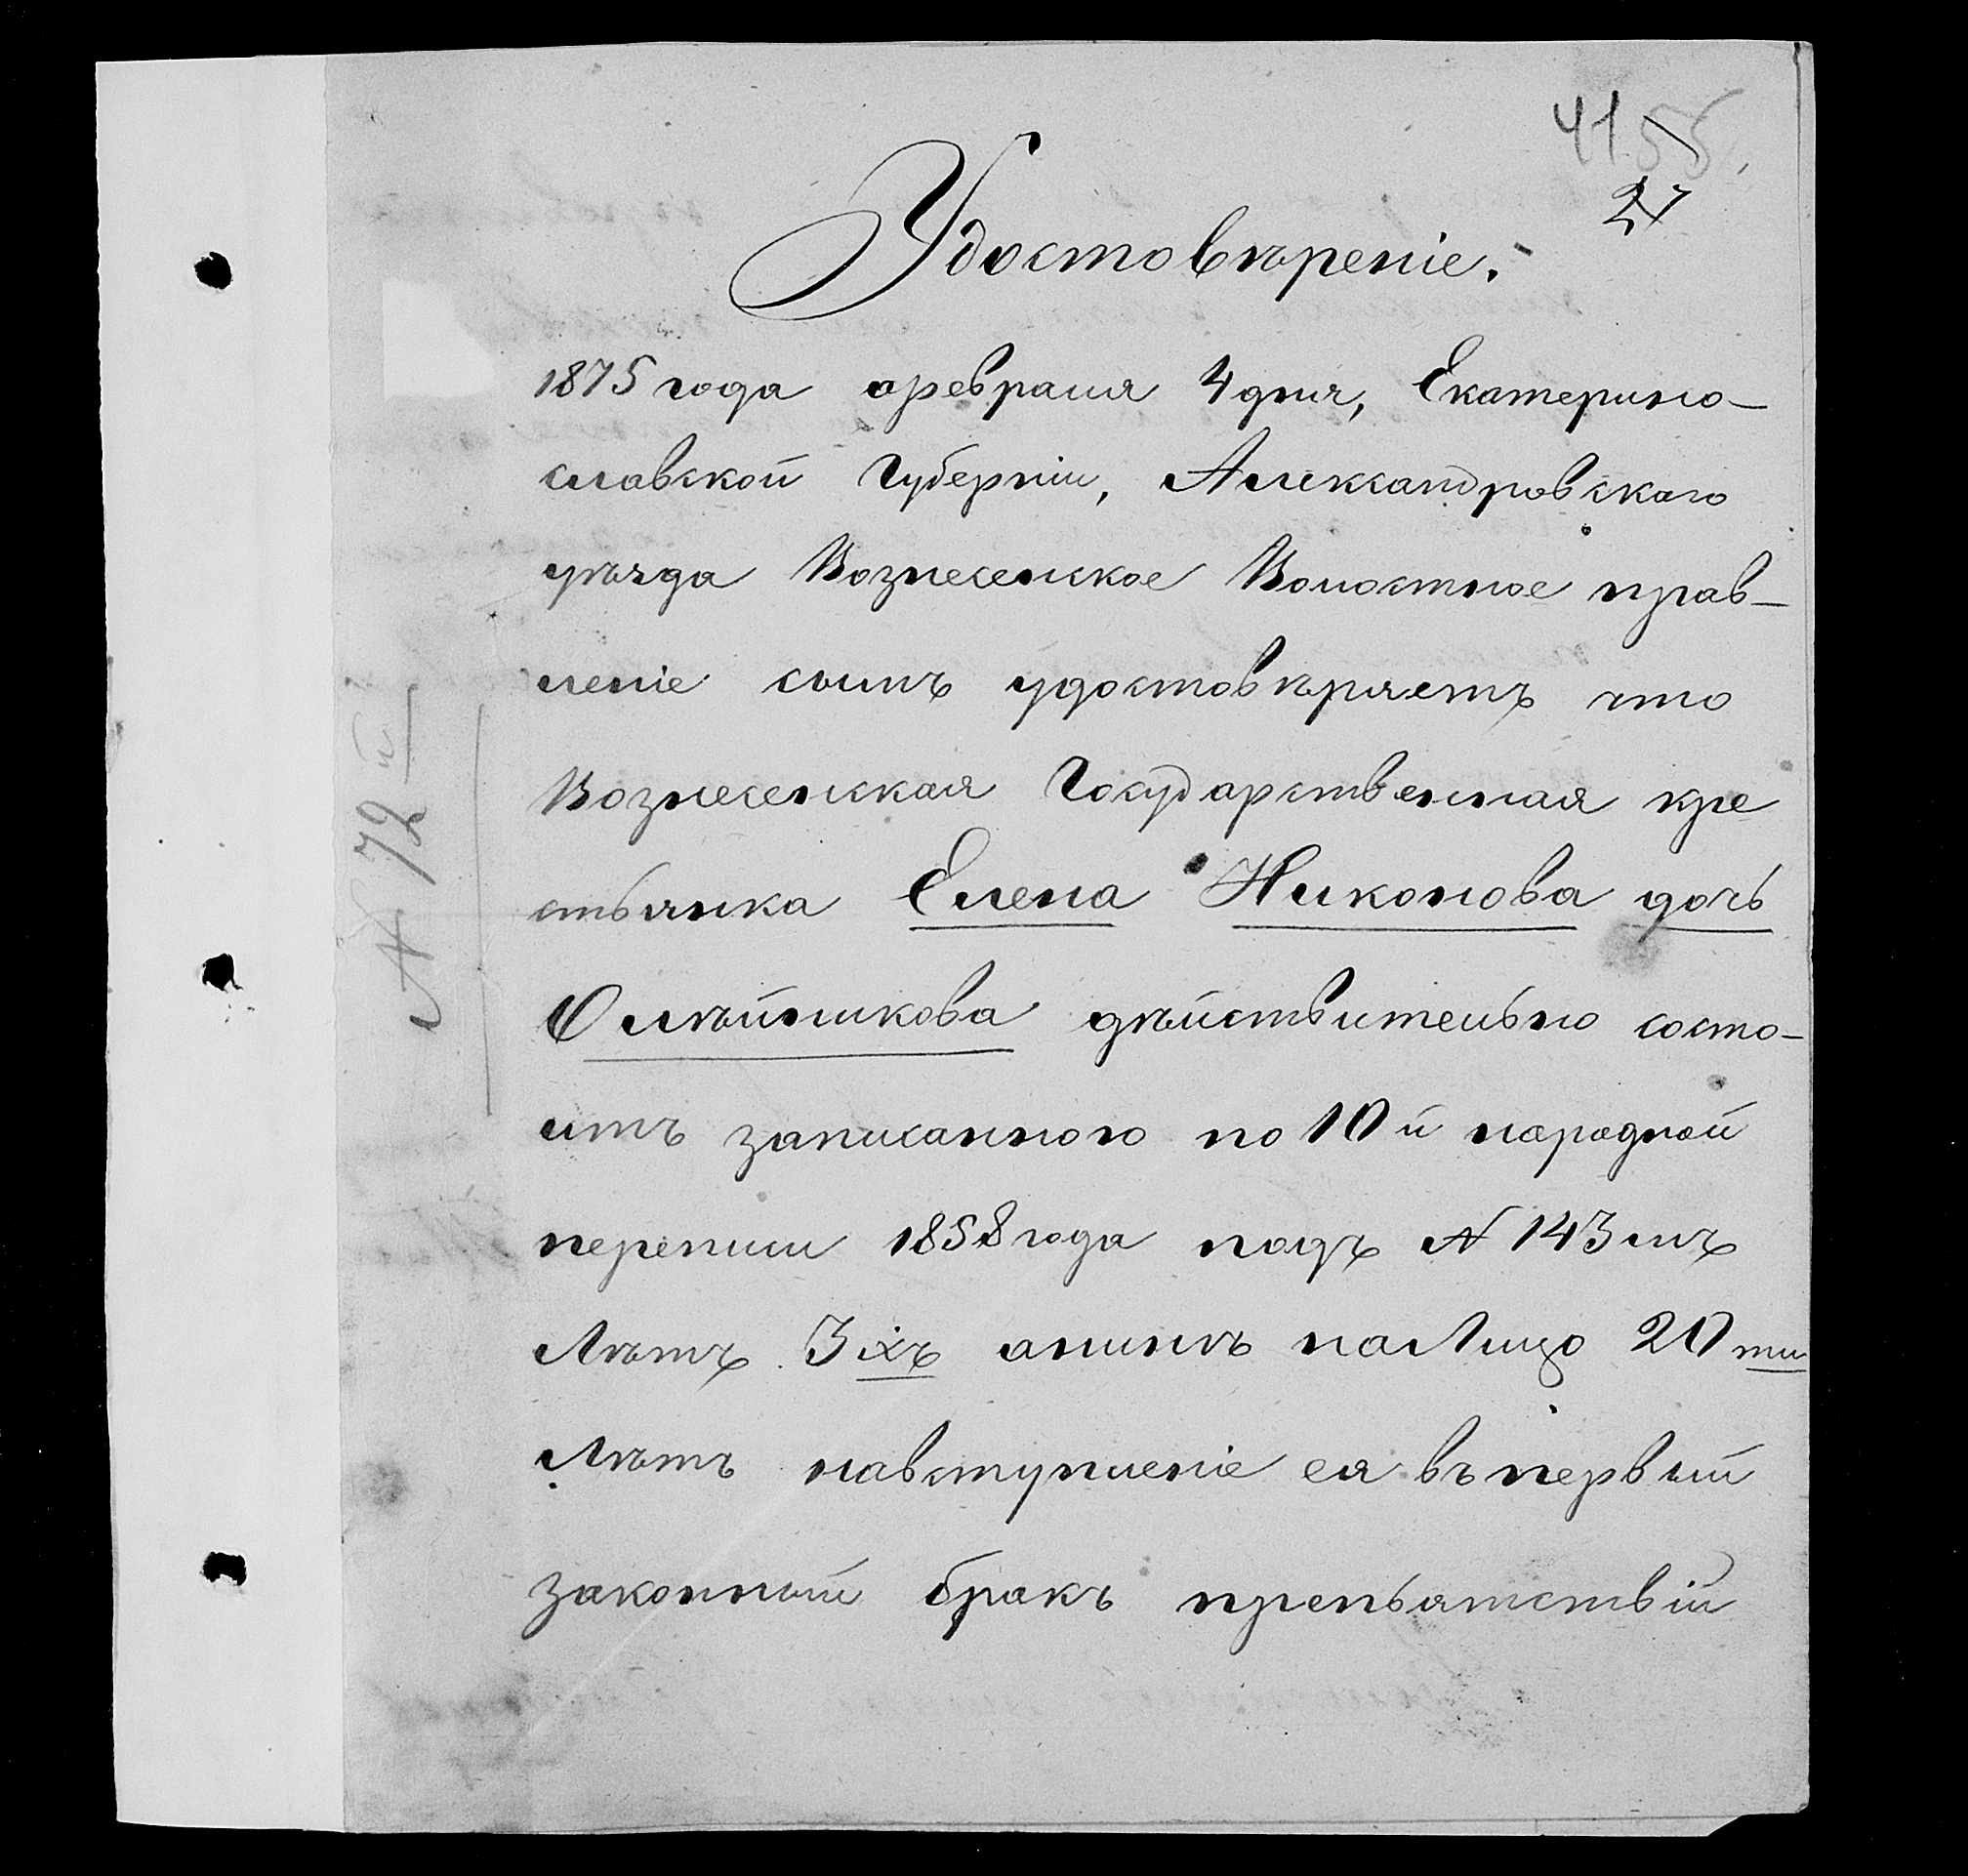 41 55
27
Удостовѣреніе.
1875 года февраля 4 дня, Екатерино-
славской Губерніи, Александровскаго
уѣзда Вознесенское Волостное прав-
леніе симъ удостовѣряетъ что
Вознесенская Государственная кре
стьянка Елена Никонова дочь
Олѣйникова дѣйствительно состо-
итъ записанною по 10й народной
переписи 1858 года подъ № 143 мъ
Лѣтъ 3 хъ анынѣ наЛицо 20 ти
Лѣтъ навступленіе ея въ первый
законный бракъ препьятствій
№ 72й